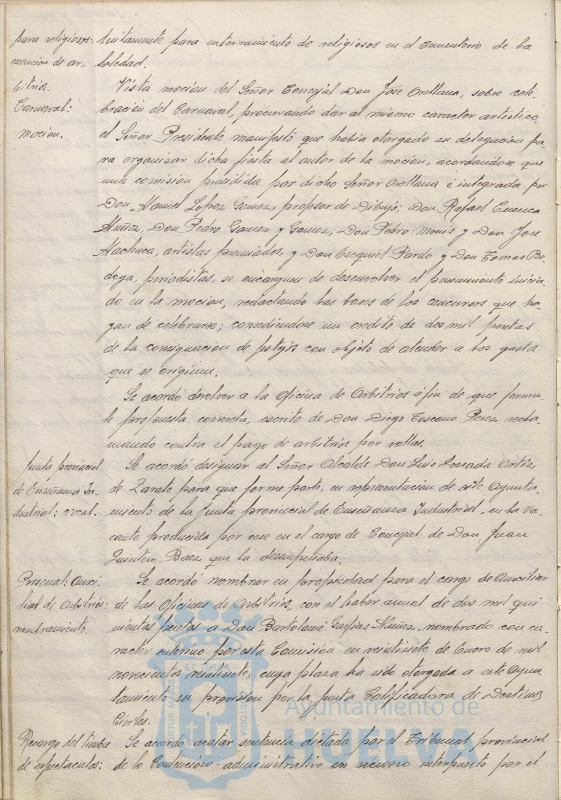 para religiosos:
exención de ar-
bitrios.
Carnaval:
moción.
tuitamente para enterramiento de religiosos en el Cementerio de la
Soledad.
Vista moción del Señor Concejal Don José Orellana, sobre cele-
bración del Carnaval, procurando dar al mismo caracter artístico,
el Señor Presidente manifestó que había otorgado su delegación pa-
ra organizar dicha fiesta al autor de la moción, acordándose que
una comisión presidida por dicho Señor Orellana é integrada por
Don Manuel Lopez Gomez, profesor de Dibujo; Don Rafael Cuenca
Muñoz, Don Pedro Gomez y Gomez, Don Pedro y Don José
artistas premiados, y Don Ezequiel Pardo y Don Tomas Be-
doya, periodistas, se encarguen de desenvolver el pensamiento inicia-
do en la moción, redactando las bases de los concursos que ha-
yan de celebrarse; concediéndose un crédito de dos mil pesetas
de la consignación de festejos con objeto de atender a los gastos
que se originen.
Se acordó devolver a la Oficina de Arbitrios á fin de que formu-
le propuesta concreta, escrito de Don Diego Toscano Perez recla-
mando contra el pago de arbitrios por vallas.
Junta provincial
de Enseñanza In-
dustrial: vocal.
Se acordó designar al Señor Alcalde Don Luis Ortiz
de Zarate para que forme parte, en representación de este Ayunta-
miento de la Junta provincial de Enseñanza Industrial, en la va-
cante producida por cese en el cargo de Concejal de Don Juan
Quintero Baez que la desempeñaba.
Personal: Auxi-
liar de Arbitrios:
nombramiento.
Se acordó nombrar en propiedad para el cargo de Auxiliar
de las Oficinas de Arbitrios, con el haber anual de dos mil qui-
nientas pesetas a Don Bartolomé Nuñez, nombrado con ca-
racter interino por esta Comisión en veintisiete de Enero de mil
novecientos veintisiete, cuya plaza ha sido otorgada a este Ayun-
tamiento su provisión por la Junta Calificadora de Destinos
Civiles.
Recargo del timbre
de espectaculos:
Se acordó acatar sentencia dictada por el Tribunal provincial
de lo Contencioso-administrativo en recurso interpuesto por el
Ayuntamiento de
HUELVA